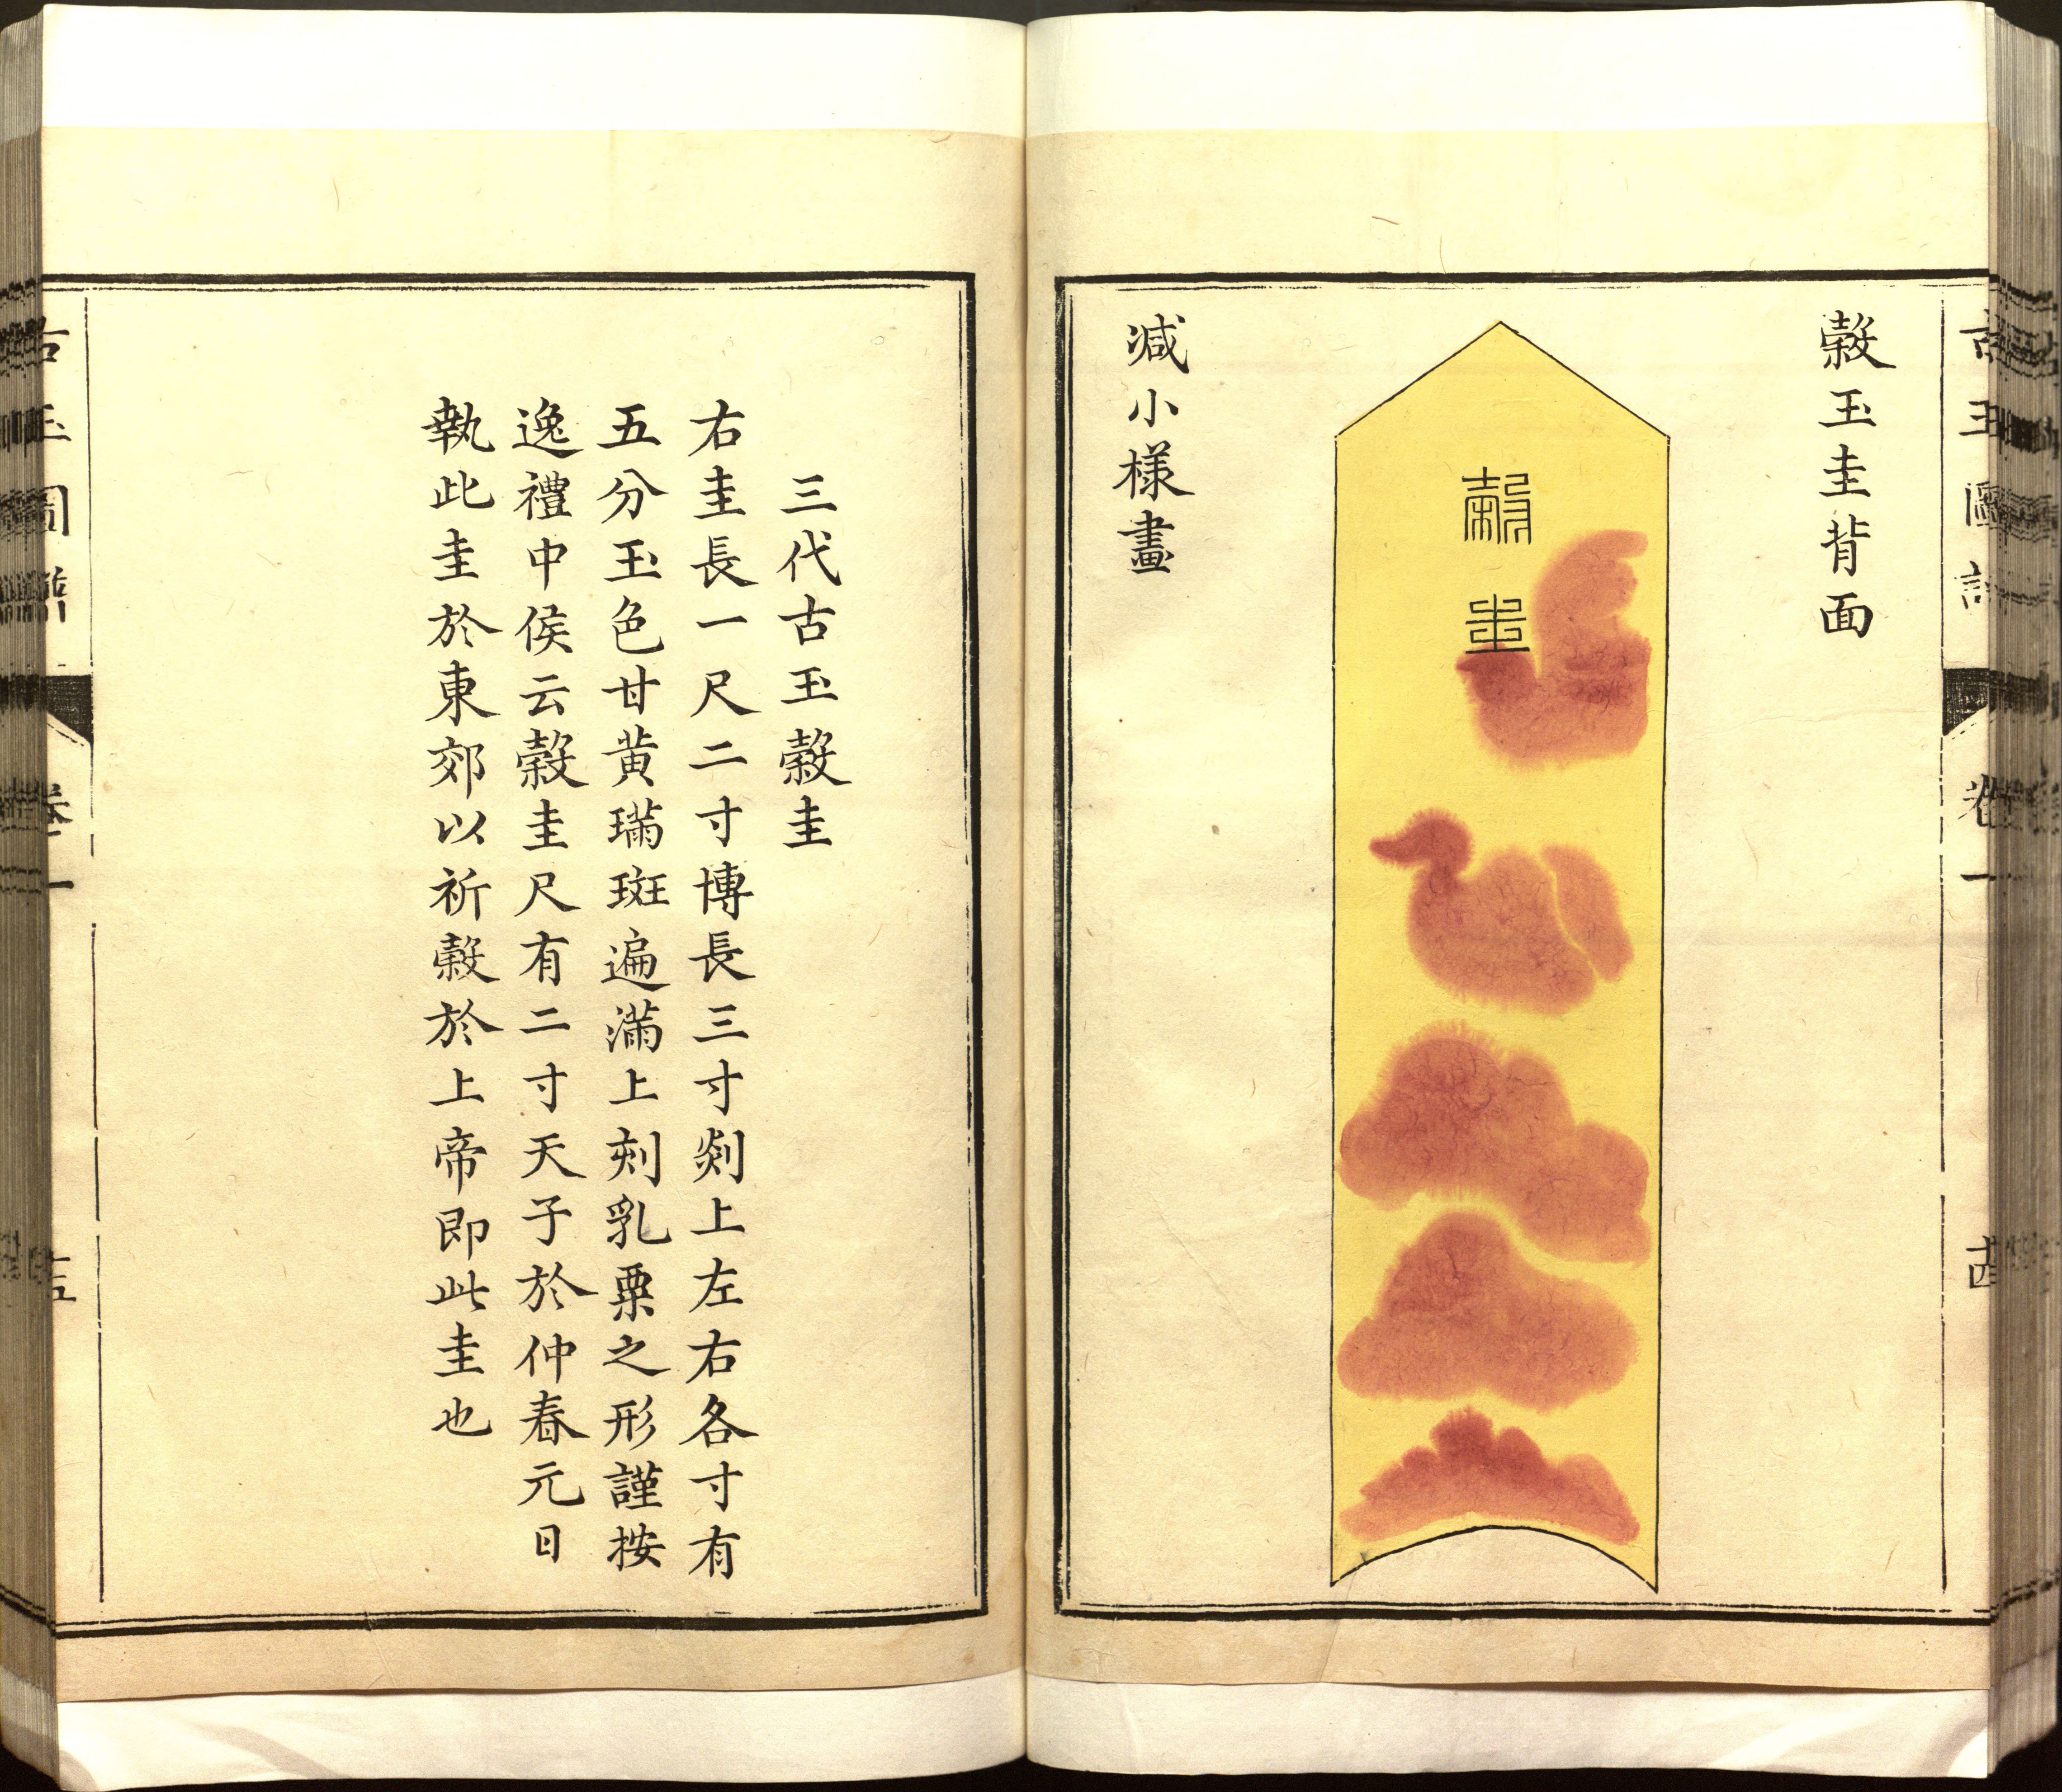 古玉圖譜 卷一
榖玉圭背面
榖圭
減小樣畫
三代古玉榖圭
右圭長一尺二寸博長三寸剡上左右各寸有
五分玉色甘黄璊斑遍滿上刻乳粟之形謹按
逸禮中侯云榖圭尺有二寸天子於仲春元日
執此圭於東郊以祈榖於上帝即此圭也
古玉圖譜 卷一